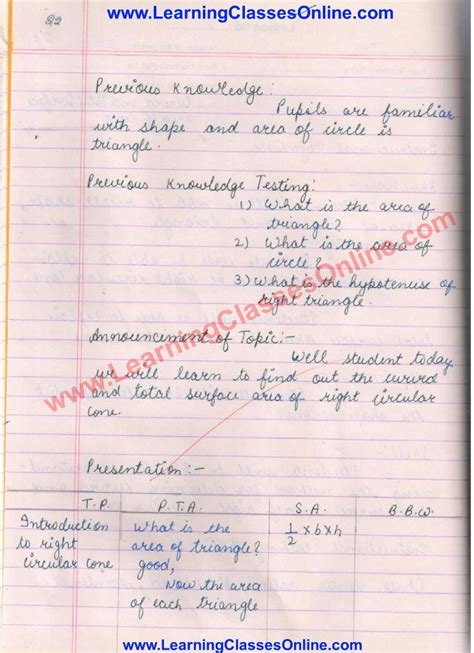 www.LearningClassesOnline.com
22
Previous Knowledge:
Pupils are familiar
with shape and area of circle is
triangle.
Previous Knowledge Testing:
1) What is the area of
triangle?
2) What is the area of
circle?
3) What is the hypotenuse of
right triangle.
www.LearningClassesOnline.com
Announcement of Topic:-
Well student today
we will learn to find out the curved
and total surface area of right circular
cone.
Presentation:-
T.P. P.T.A. S.A. B.B.W.
Introduction What is the 1/2 x b x h
to right area of triangle?
circular cone good,
Now the area
of each triangle
www.LearningClassesOnline.com